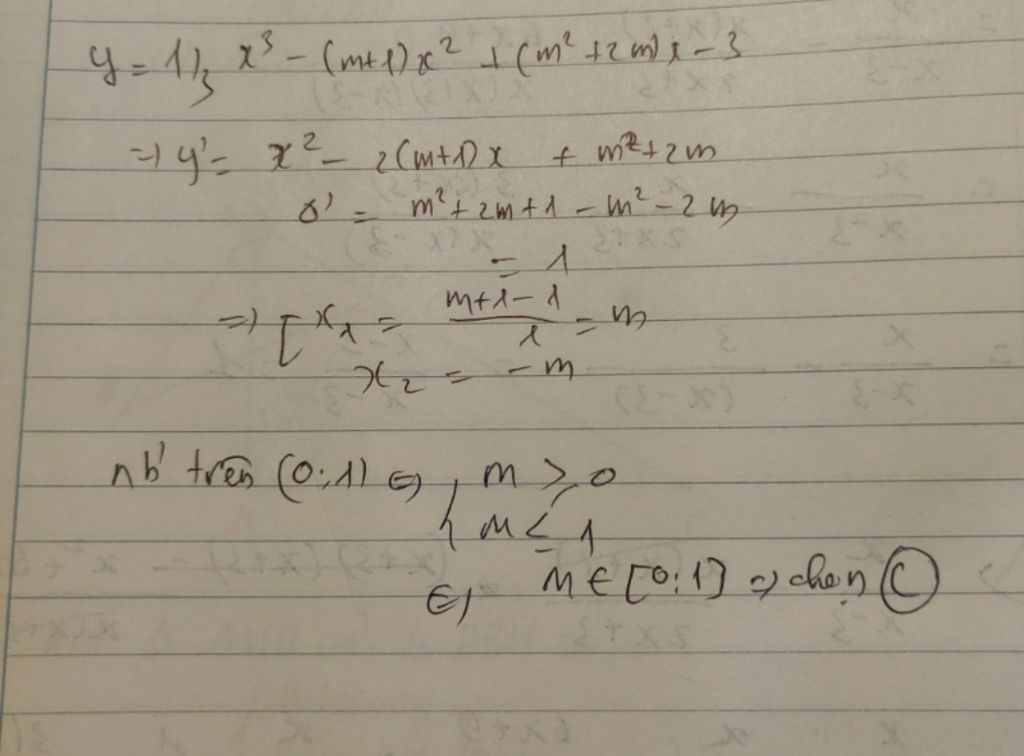 y = 1/3 x³ - (m+1)x² + (m² + 2m)x - 3
=> y' = x² - 2(m+1)x + m² + 2m
Δ' = m² + 2m + 1 - m² - 2m
= 1
=> [ x₁ = (m+1-1)/1 = m
x₂ = -m
nb' trên (0;1) <=> { m ≥ 0
m ≤ 1
<=> m ∈ [0;1] => chọn C